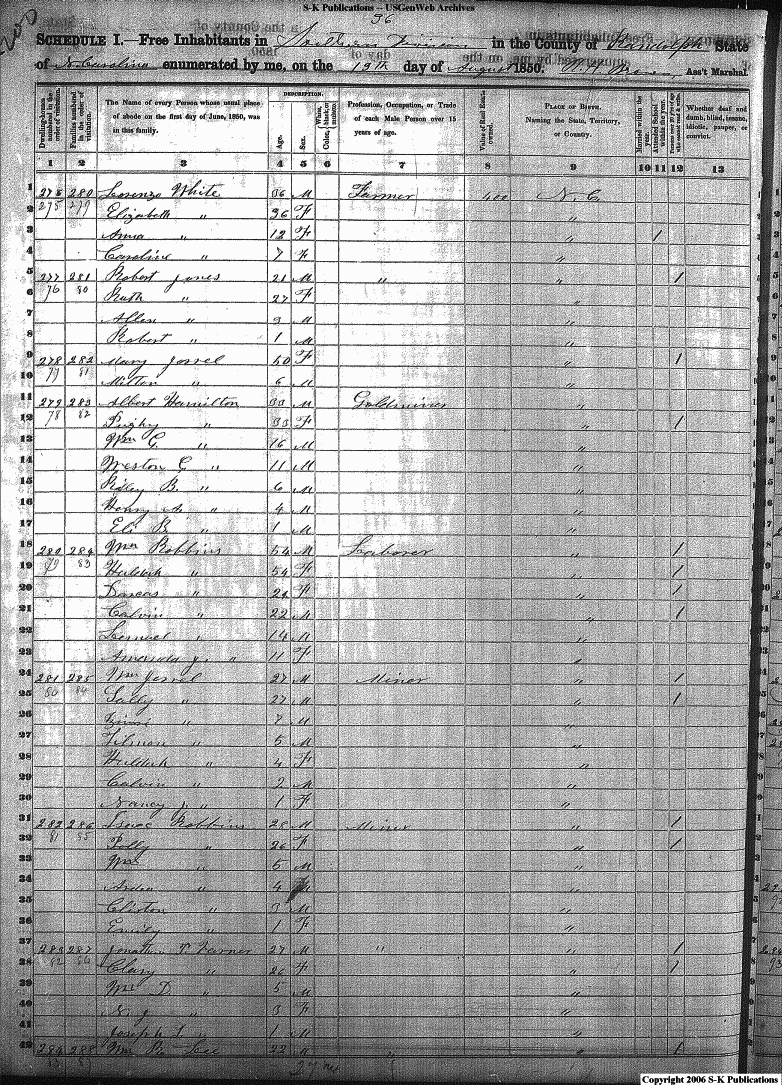 S-K Publications -- USGenWeb Archives
36
SCHEDULE I.—Free Inhabitants in Southern Division in the County of Randolph State
of N. Carolina enumerated by me, on the 13th day of August 1850. Ass't Marshal.
Dwelling-houses numbered in the order of visitation.
Families numbered in the order of visitation.
The Name of every Person whose usual place of abode on the first day of June, 1850, was in this family.
DESCRIPTION.
Age.
Sex.
White, black, or mulatto.
Color,
Profession, Occupation, or Trade of each Male Person over 15 years of age.
Value of Real Estate owned.
PLACE OF BIRTH.
Naming the State, Territory, or Country.
Married within the year.
Attended School within the year.
Whether deaf and dumb, blind, insane, idiotic, pauper, or convict.
1 2 3 4 5 6 7 8 9 10 11 12 13
1 276 280 Lorenzo White 36 M Farmer 400 N. C.
2 275 279 Elizabeth " 36 F "
3 Anna " 12 F " 1
4 Caroline " 7 F "
5 277 281 Robert Jones 21 M " " 1
6 76 80 Ruth " 27 F "
7 Allen " 3 M "
8 Robert " 1 M "
9 278 282 Mary Jorrel 50 F " 1
10 77 81 Milton " 6 M "
11 279 283 Albert Hamilton 33 M Goldminer "
12 78 82 " 33 F " 1
13 Wm C. " 16 M "
14 Weston C " 11 M "
15 Riley B. " 6 M "
16 Henry A. " 4 M "
17 Eli B " 1 M "
18 280 284 Wm Robbins 54 M Laborer " 1
19 79 83 Huldah " 54 F " 1
20 Dorcas " 24 F " 1
21 Calvin " 22 M " 1
22 Lemuel " 14 M "
23 Amanda J. " 11 F "
24 281 285 Wm Jorrel 27 M Miner " 1
25 80 84 Sally " 27 M " 1
26 " 7 M "
27 Tilmon " 5 M "
28 Huldah " 4 F "
29 Calvin " 2 M "
30 Nancy J. " 1 F "
31 282 286 Isaac Robbins 28 M Miner " 1
32 81 85 Polly " 26 F " 1
33 Wm " 5 M "
34 " 4 "
35 Clinton " 3 M "
36 Emily " 1 F "
37 283 287 Jonathan T. Varner 27 M " " 1
38 82 86 Clary " 26 F " 1
39 Wm D. " 5 M "
40 N. J. " 3 F "
41 Joseph L. " 1 M "
42 284 288 Wm B. Lee 22 M " " 1
83 87
Copyright 2006 S-K Publications